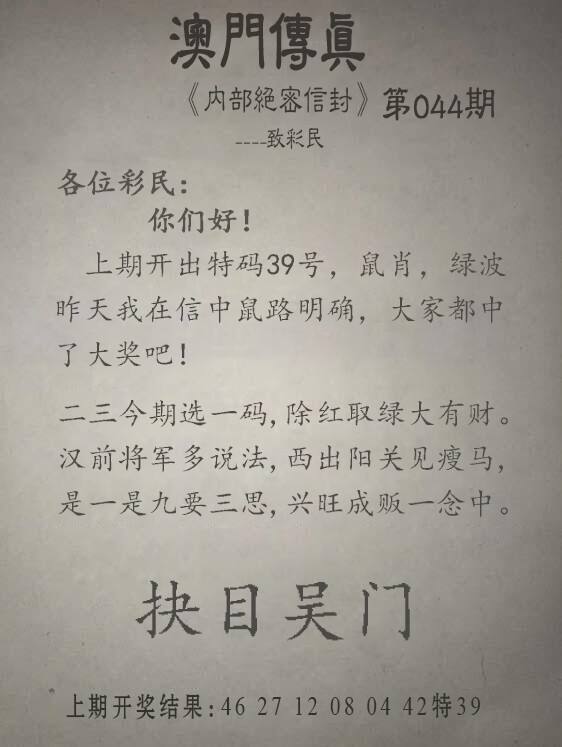 澳門傳眞
《内部絕密信封》第044期
----致彩民
各位彩民：
你们好！
上期开出特码39号，鼠肖，绿波
昨天我在信中鼠路明确，大家都中
了大奖吧！
二三今期选一码,除红取绿大有财。
汉前将军多说法,西出阳关见瘦马,
是一是九要三思,兴旺成贩一念中。
抉目吴门
上期开奖结果:46 27 12 08 04 42特39